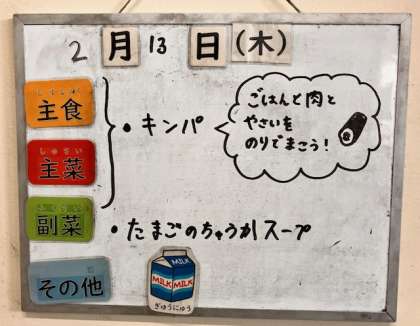 2月13日(木)
しゅしょく
主食
・キンパ
ごはんと肉と
やさいを
のりでまこう!
しゅさい
主菜
副菜
・たまごのちゅうかスープ
その他
MILK MILK
ぎゅうにゅう